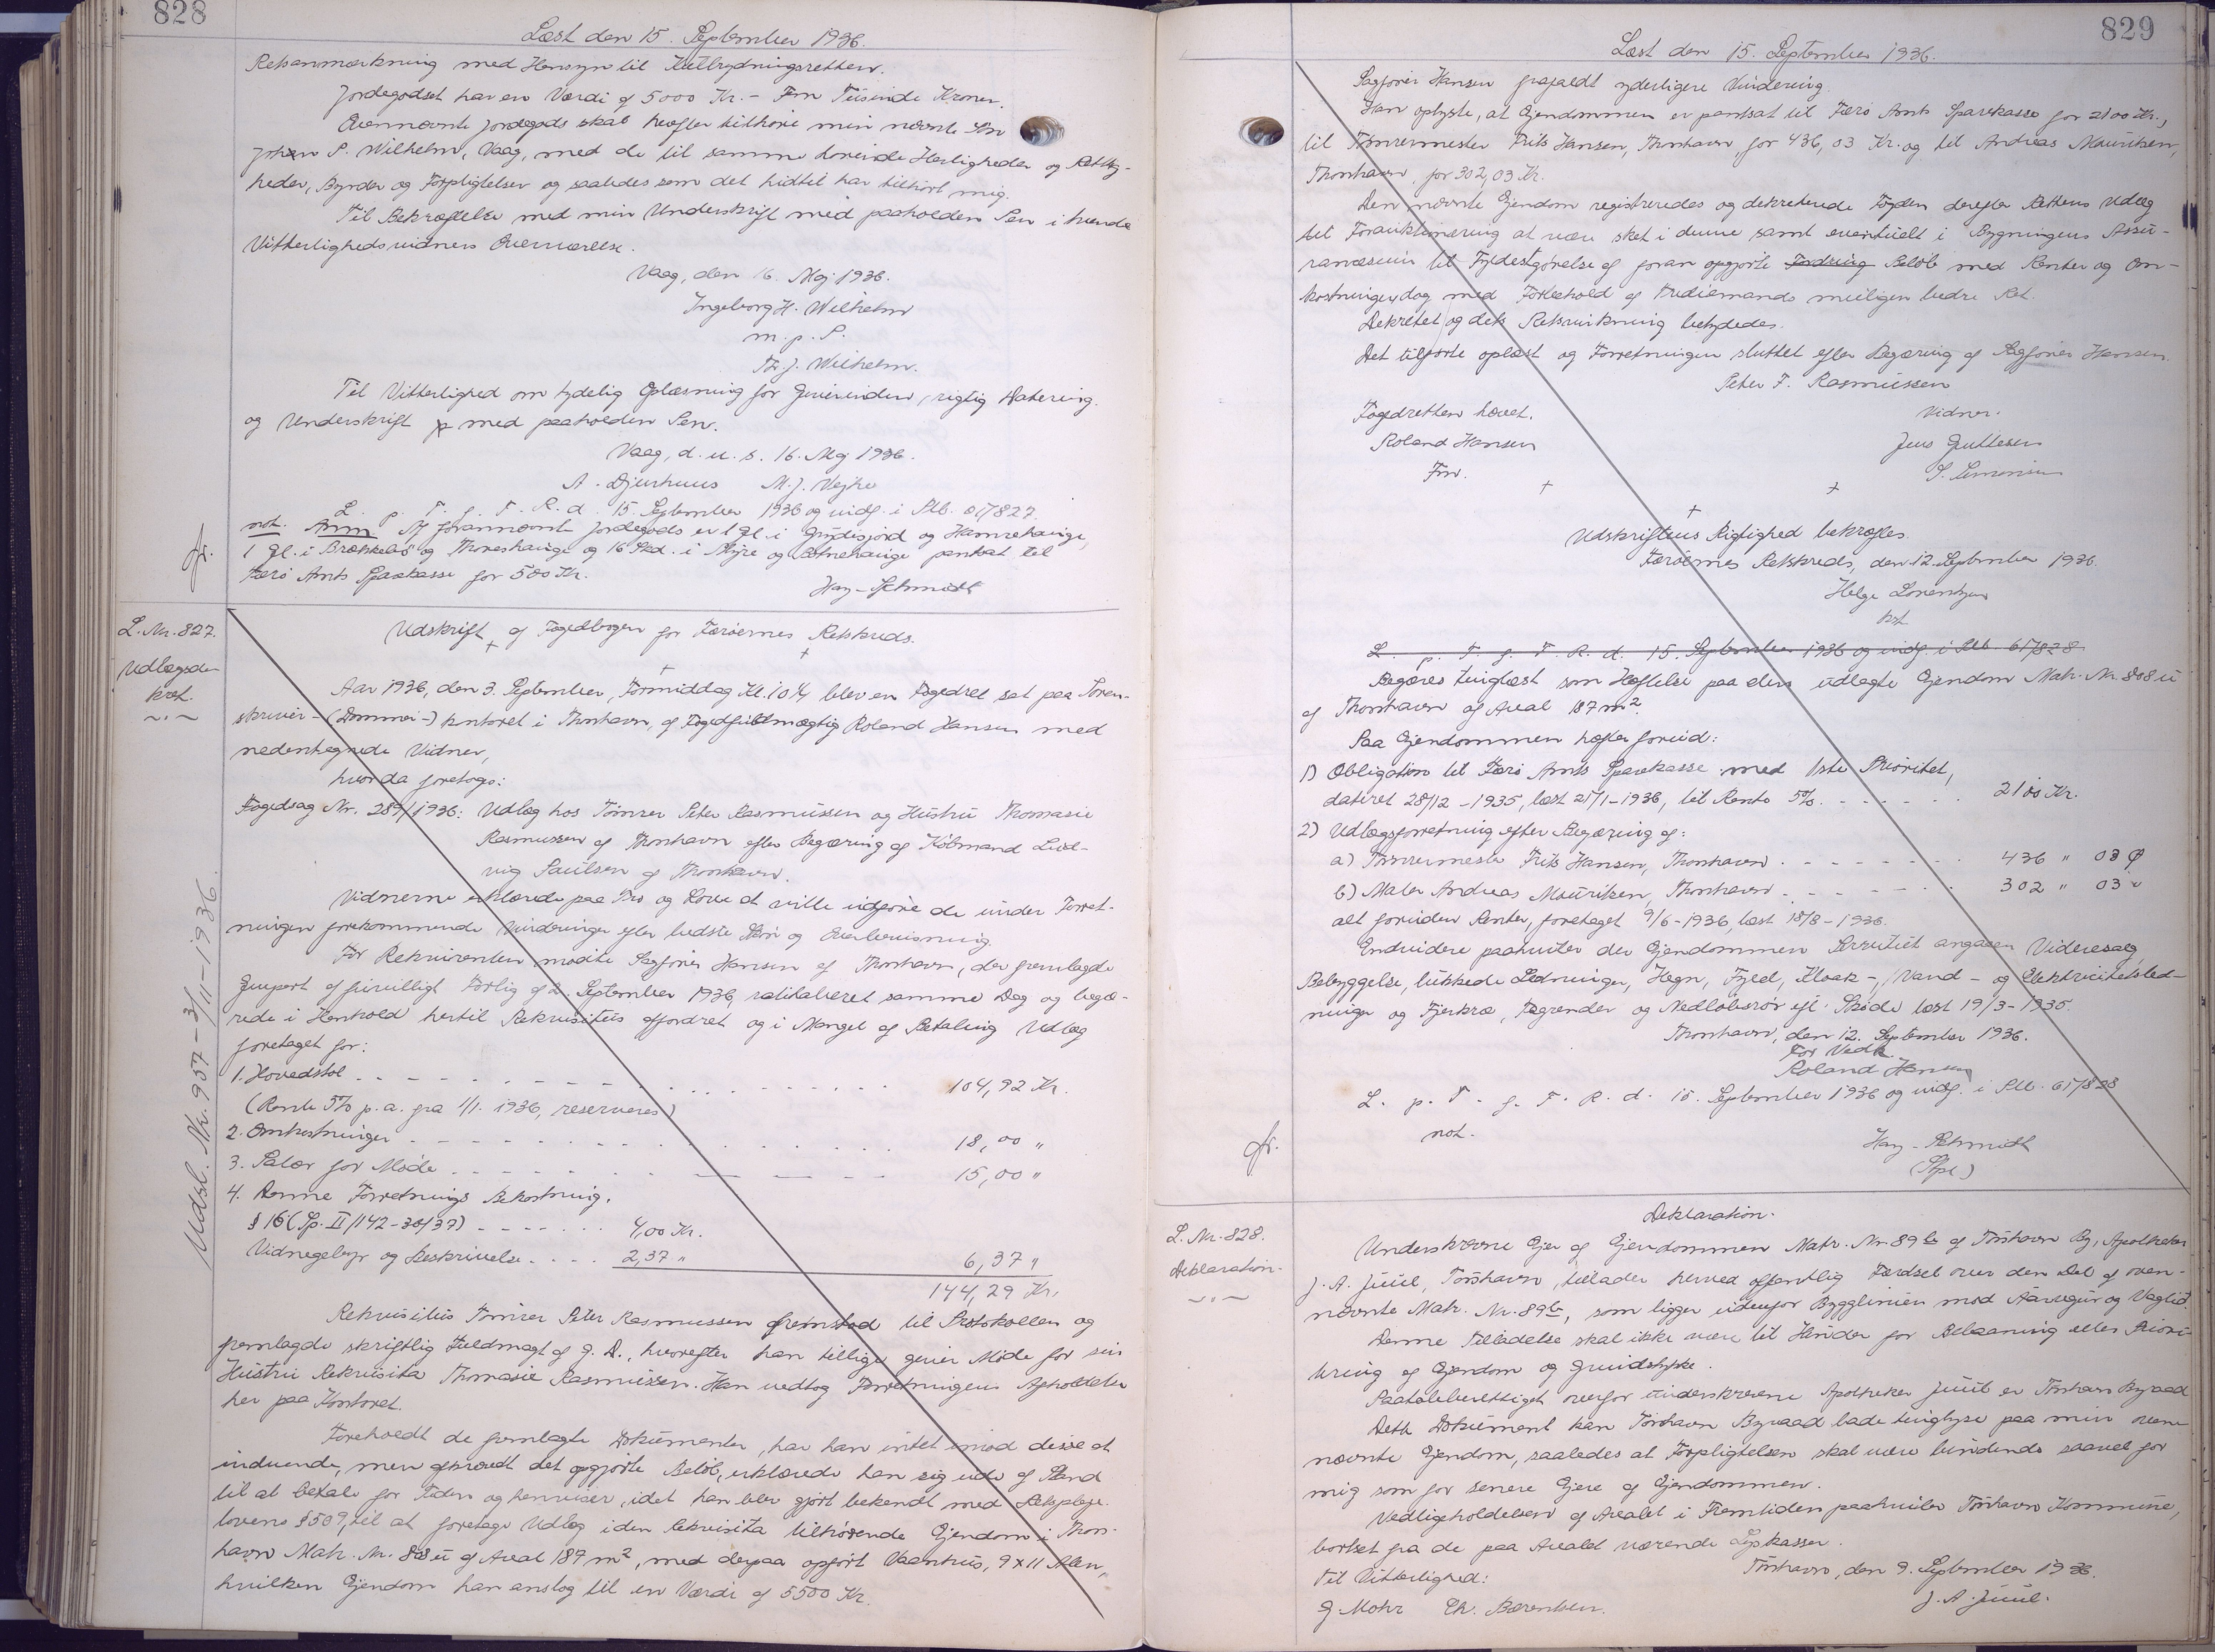 828
Læst den 15. September 1936.
Retsanmærkning med Hensyn til Kulbrydningsretten.
Jordegodset har en Værdi af 5000 Kr. - Fem Tusinde Kroner.
Ovennævnte Jordegods skal herefter tilhøre min nævnte Søn
Johan P. Wilhelm, Vaag, med de til samme hørende Herligheder og Rettig-
heder, Byrder og Forpligtelser og saaledes som det hidtil har tilhørt mig.
Til Bekræftelse med min Underskrift med paaholden Pen i tvende
Vitterlighedsvidners Overværelse.
Vaag, den 16. Maj 1936.
Ingeborg H. Wilhelm
m. p. P.
Th. J. Wilhelm.
Til Vitterlighed om tydelig Oplæsning for Giverinden, rigtig Datering
og Underskrift med paaholden Pen.
Vaag, d. u. s. 16. Maj 1936.
A. Djurhuus M. J. Vejhe
L. p. T. f. F. R. d. 15. September 1936 og indf. i Ptb. 61/827.
not. Anm Af forannævnte Jordegods er 1 Gl. i Grydisjord og Hamrehauge,
1 Gl. i Brekkebø og Thoreshauge og 16 Skd. i Myre og pantsat til
Færø Amts Sparekasse for 500 Kr.
Hay-Schmidt
fr.
L. Nr. 827.
Udlægsde
kret.
Udskrift af Fogedbogen for Færøernes Retskreds.
Aar 1936, den 3. September, Formiddag Kl. 10¼ blev en Fogedret sat paa Soren-
skriver- (Dommer-) kontoret i Thorshavn, af Fogedfuldmægtig Roland Hansen med
nedentegnede Vidner,
hvorda foretoges:
Fogedsag Nr. 289/1936: Udlæg hos Tømrer Peter Rasmussen og Hustru Thomasie
Rasmussen af Thorshavn efter Begæring af Købmand Lud-
vig Poulsen af Thorshavn.
Vidnerne erklærede paa Tro og Love at ville udføre de under Forret-
ningen forekommende Vurderinger efter bedste Skøn og Overbevisning.
For Rekvirenten mødte Sagfører Hansen af Thorshavn, der fremlagde
Genpart af frivilligt Forlig af 2. September 1936, ratihaberet samme Dag og begæ-
rede i Henhold hertil Rekvisitus affordret og i Mangel af Betaling Udlæg
foretaget for:
1. Hovedstol 104,92 Kr.
(Rente 5% p. a. fra 1/1. 1936, reserveres)
2. Omkostninger 18,00 "
3. Salær for Møde 15,00 "
4. Denne Forretnings Bekostning.
§ 16 (Sp. II/1142-30/37) 4,00 Kr.
Vidnegebyr og Beskrivelse 2,37 " 6,37 "
144,29 Kr.
Udsl. Nr. 957 - 3/11-1936.
Rekvisitus Tømrer Peter Rasmussen fremstod til Protokollen og
fremlagde skriftlig Fuldmagt af g. D., hvorefter han tillige giver Møde for sin
Hustru Rekvisita Thomasie Rasmussen. Han vedtog Forretningens Afholdelse
her paa Kontoret.
Foreholdt de fremlagte Dokumenter, har han intet imod disse at
indvende, men afkrævet det opgjorte Beløb, erklærede han sig ude af Stand
til at betale for Tiden og henviser, idet han blev gjort bekendt med Retspleje-
lovens § 509, til at foretage Udlæg i den Rekvisita tilhørende Ejendom i Thors-
havn Matr. Nr. 808 ü af Areal 187 m², med derpaa opført Vaanhus, 9 x 11 Alen,
hvilken Ejendom han anslog til en Værdi af 5500 Kr.
829
Læst den 15. September 1936.
Sagfører Hansen frafaldt yderligere Vurdering.
Han oplyste, at Ejendommen er pantsat til Færø Amts Sparekasse for 2100 Kr.,
til Tømrermester Frits Hansen, Thorshavn, for 436,03 Kr. og til Andreas Mouritsen,
Thorshavn, for 302,03 Kr.
Den nævnte Ejendom registreredes og dekreterede Fogden derefter Rettens Udlæg
til Forauktionering at være sket i denne samt eventuelt i Bygningens Assu-
rancesum til Fyldestgørelse af foran opgjorte Fordring Beløb med Renter og Om-
kostninger, dog med Forbehold af Trediemands muligen bedre Ret.
Dekretet og dets Retsvirkning betydedes.
Det tilførte oplæst og Forretningen sluttet efter Begæring af Sagfører Hansen.
Peter F. Rasmussen
Fogedretten hævet. Vidner.
Roland Hansen Jens Guttesen
Fm. S. Simonsen
Udskriftens Rigtighed bekræftes.
Færøernes Retskreds, den 12. September 1936.
Helge Lorentzen
kst.
L. p. T. f. F. R. d. 15. September 1936 og indf. i Ptb. 61/828
Begæres tinglæst som Hæftelse paa den udlagte Ejendom Matr. Nr. 808 ü
af Thorshavn af Areal 187 m².
Paa Ejendommen hæfter forud:
1) Obligation til Færø Amts Sparekasse med 1ste Prioritet,
dateret 28/12 - 1935, læst 21/1 - 1936, til Rente 5% 2100 Kr.
2) Udlægsforretning efter Begæring af:
a) Tømrermester Frits Hansen, Thorshavn 436 " 03 Ø
b) Maler Andreas Mouritsen, Thorshavn 302 " 03 "
alt foruden Renter, foretaget 9/6 - 1936, læst 18/8 - 1936.
Endvidere paahviler der Ejendommen Servitut angaaende Videresalg,
Bebyggelse, lukkede Ledninger, Hegn, Fyld, Kloak-, Vand- og Elektricitetsled-
ninger og Fjerkræ, Tagrender og Nedløbsrør ifl. Skøde læst 19/3 - 1935.
Thorshavn, den 12. September 1936.
For Vedk.
Roland Hansen
L. p. T. f. F. R. d. 15. September 1936 og indf. i Ptb. 61/828
not.
Hay-Schmidt
fr.
L. Nr. 828.
Deklaration.
Deklaration.
Underskrevne Ejer af Ejendommen Matr. Nr. 89 b af Tórshavn By, Apotheker
J. A. Juul, Tórshavn, tillader herved offentlig Færdsel over den Del af oven-
nævnte Matr. Nr. 89 b, som ligger udenfor Bygglinien mod Aarvegur og Vaglið.
Denne Tilladelse skal ikke være til Hinder for Belaaning eller Priori-
tering af Ejendom og Grundstykke.
Paataleberettiget overfor underskrevne Apotheker Juul er Tórshavn Byraad
Dette Dokument kan Tórshavn Byraad lade tinglyse paa min oven-
nævnte Ejendom, saaledes at Forpligtelsen skal være bindende saavel for
mig som for senere Ejere af Ejendommen.
Vedligeholdelsen af Arealet i Fremtiden paahviler Tórshavn Kommune,
bortset fra de paa Arealet værende Lyskasser.
Til Vitterlighed: Tórshavn, den 9. September 1936.
G. Mohr Chr. Bærentsen. J. A. Juul.